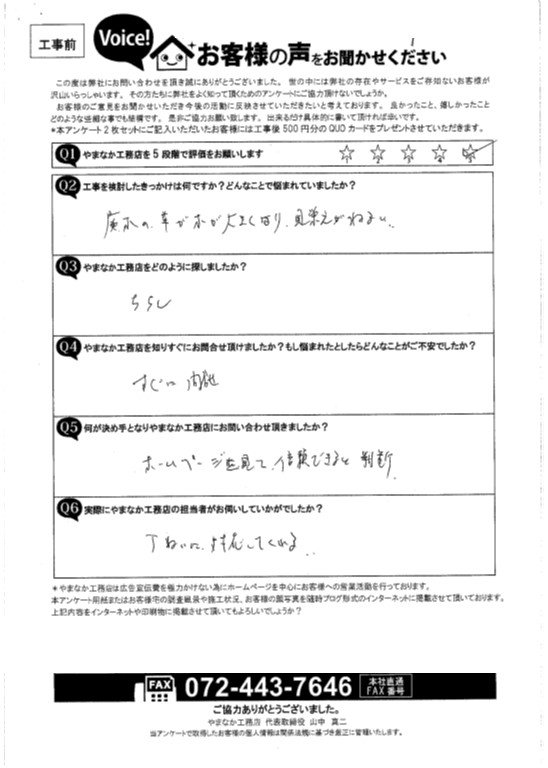 工事前
Voice!
お客様の声をお聞かせください
この度は弊社にお問い合わせを頂き誠にありがとうございました。世の中には弊社の存在やサービスをご存知ないお客様が
沢山いらっしゃいます。その方たちに弊社をよく知って頂くためのアンケートにご協力頂けないでしょうか。
お客様のご意見をお聞かせいただき今後の活動に反映させていただきたいと考えております。良かったこと、嬉しかったこと
どのような些細な事でも結構です。是非ご協力お願い致します。出来るだけ具体的に書いて頂ければ幸いです。
*本アンケート2枚セットにご記入いただいたお客様には工事後500円分のQUOカードをプレゼントさせていただきます。
Q1 やまなか工務店を5段階で評価をお願いします
Q2 工事を検討したきっかけは何ですか？どんなことで悩まれていましたか？
草が木が大きくなり、見栄えがわるい。
Q3 やまなか工務店をどのように探しましたか？
ちらし
Q4 やまなか工務店を知りすぐにお問合せ頂けましたか？もし悩まれたとしたらどんなことがご不安でしたか？
すぐに
Q5 何が決め手となりやまなか工務店にお問い合わせ頂きましたか？
ホームページを見て、信頼できると判断
Q6 実際にやまなか工務店の担当者がお伺いしていかがでしたか？
丁ねいに、対応してくれる。
*やまなか工務店は広告宣伝費を極力かけない為にホームページを中心にお客様への営業活動を行っております。
本アンケート用紙またはお客様宅の調査風景や施工状況、お客様の顔写真を随時ブログ形式のインターネットに掲載させて頂いております。
上記内容をインターネットや印刷物に掲載させて頂いてもよろしいでしょうか？
FAX 072-443-7646 本社直通
FAX番号
ご協力ありがとうございました。
やまなか工務店 代表取締役 山中 真二
当アンケートで取得したお客様の個人情報は関係法規に基づき厳正に管理いたします。